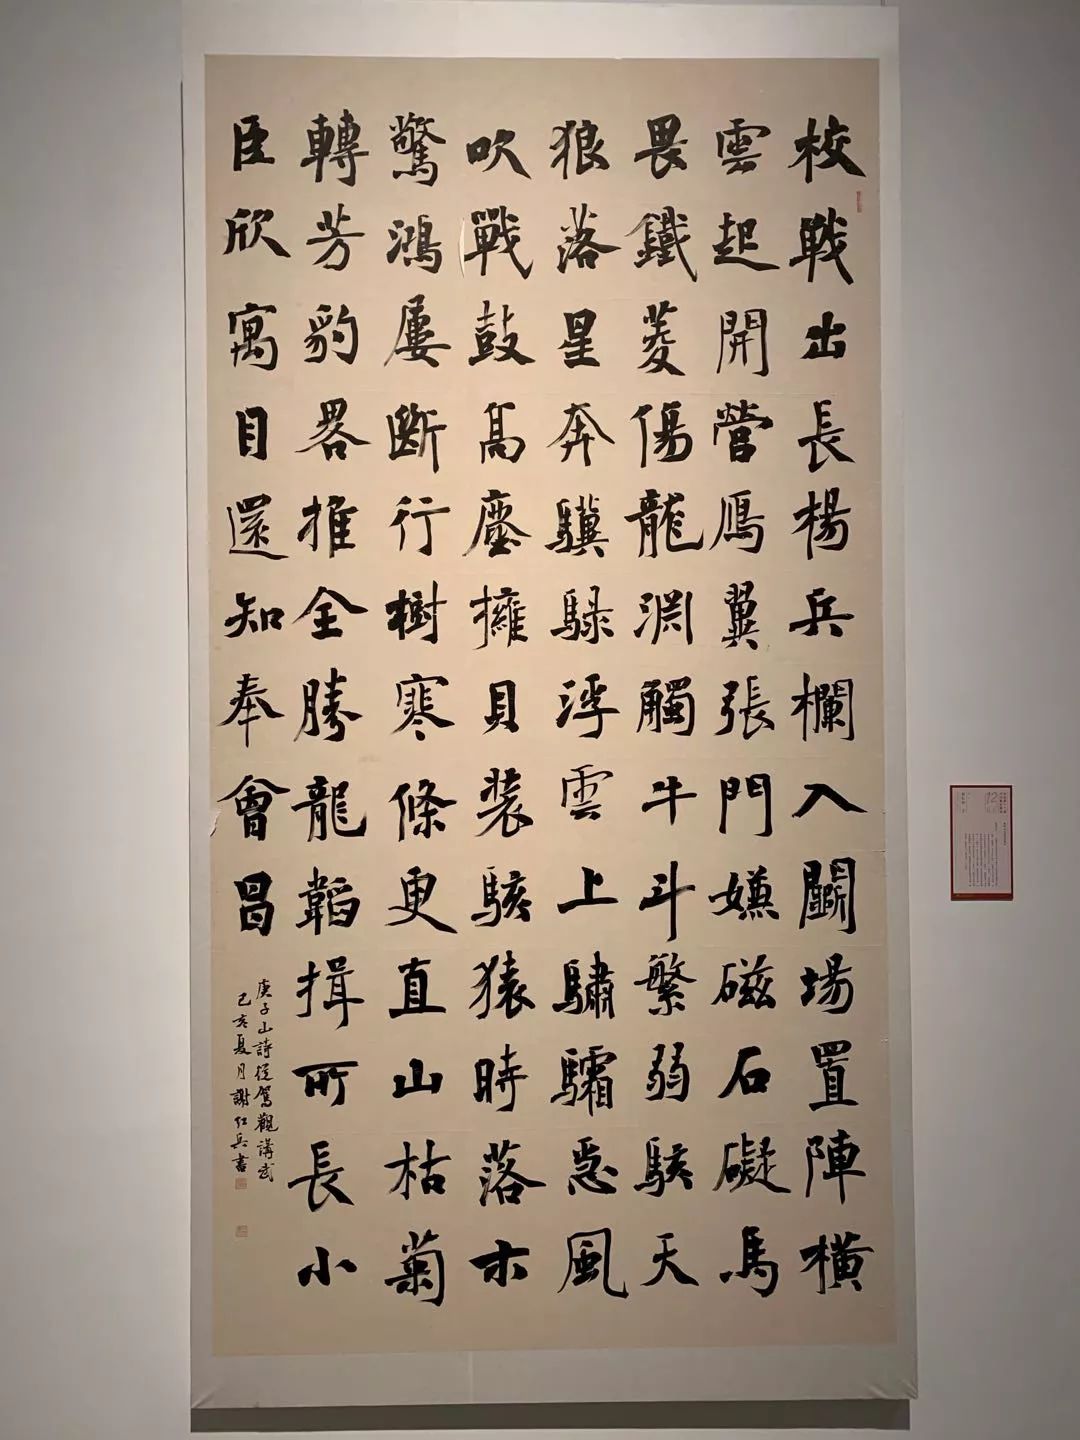 校戰出長楊兵欄入鬭場置陣橫
雲起開營鴈翼張門嫌磁石礙馬
畏鐵菱傷龍淵觸牛斗繁弱駭天
狼落星奔驥騄浮雲上驌驦惡風
吹戰鼓高塵擁貝裝駭猿時落木
驚鴻屢斷行樹寒條更直山枯菊
轉芳豹畧推全勝龍韜揖所長小
臣欣寓目還知奉會昌
庾子山詩從駕觀講武
己亥夏月謝紅兵書